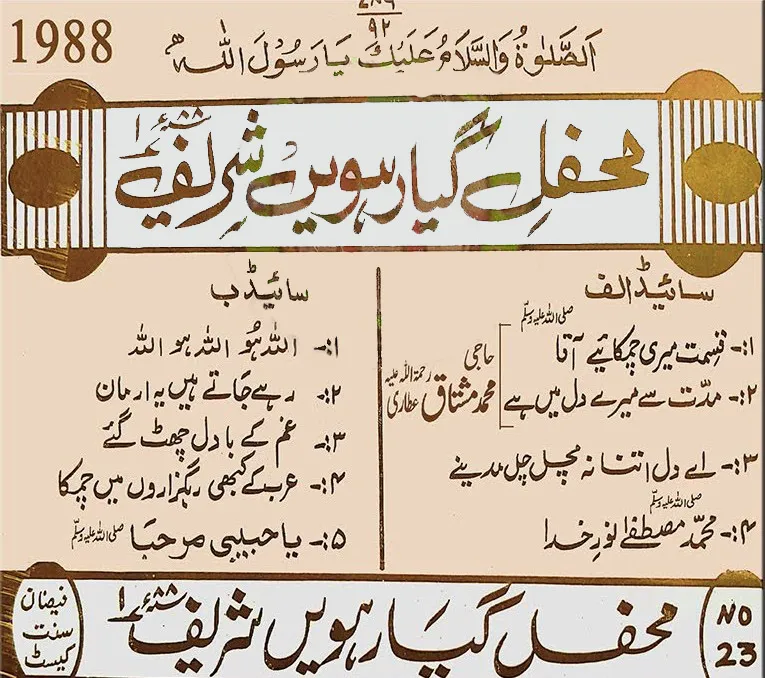 1988
۷۸۶
۹۲
اَلصَّلٰوةُ وَالسَّلَامُ عَلَيْكَ يَا رَسُولَ اللہ ﷺ
محفلِ گیارہویں شریف ۱۹۸۸ء
سائیڈ الف
۱:- قسمت میری چمکائیے آقا صلی اللہ علیہ وسلم
۲:- مدّت سے میرے دل میں ہے
حاجی محمد مشتاق عطاری رحمۃ اللہ علیہ
۳:- اے دل اتنا نہ مچل چل مدینے
۴:- محمّد مصطفےٰ نورِ خدا صلی اللہ علیہ وسلم
سائیڈ ب
۱:- اللہ ھُو اللہ ھو اللہ
۲:- رہے جاتے ہیں یہ ارمان
۳:- غم کے بادل چھٹ گئے
۴:- عرب کے کبھی ریگزاروں میں چمکا
۵:- یا حبیبی مرحبَا صلی اللہ علیہ وسلم
NO
23
محفل گیارہویں شریف ۱۹۸۸ء
فیضان
سنت
کیسٹ